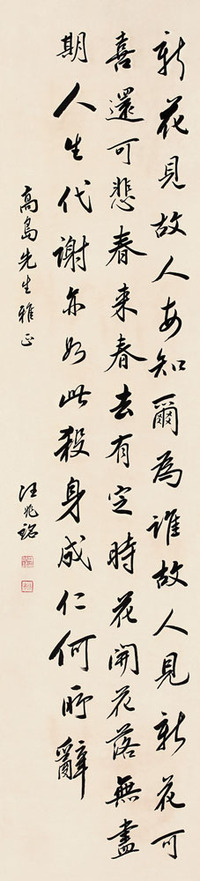 新花見故人安知爾為誰故人見新花可
喜還可悲春来春去有定時花開花落無盡
期人生代謝亦如此殺身成仁何所辭
高島先生雅正
汪兆銘